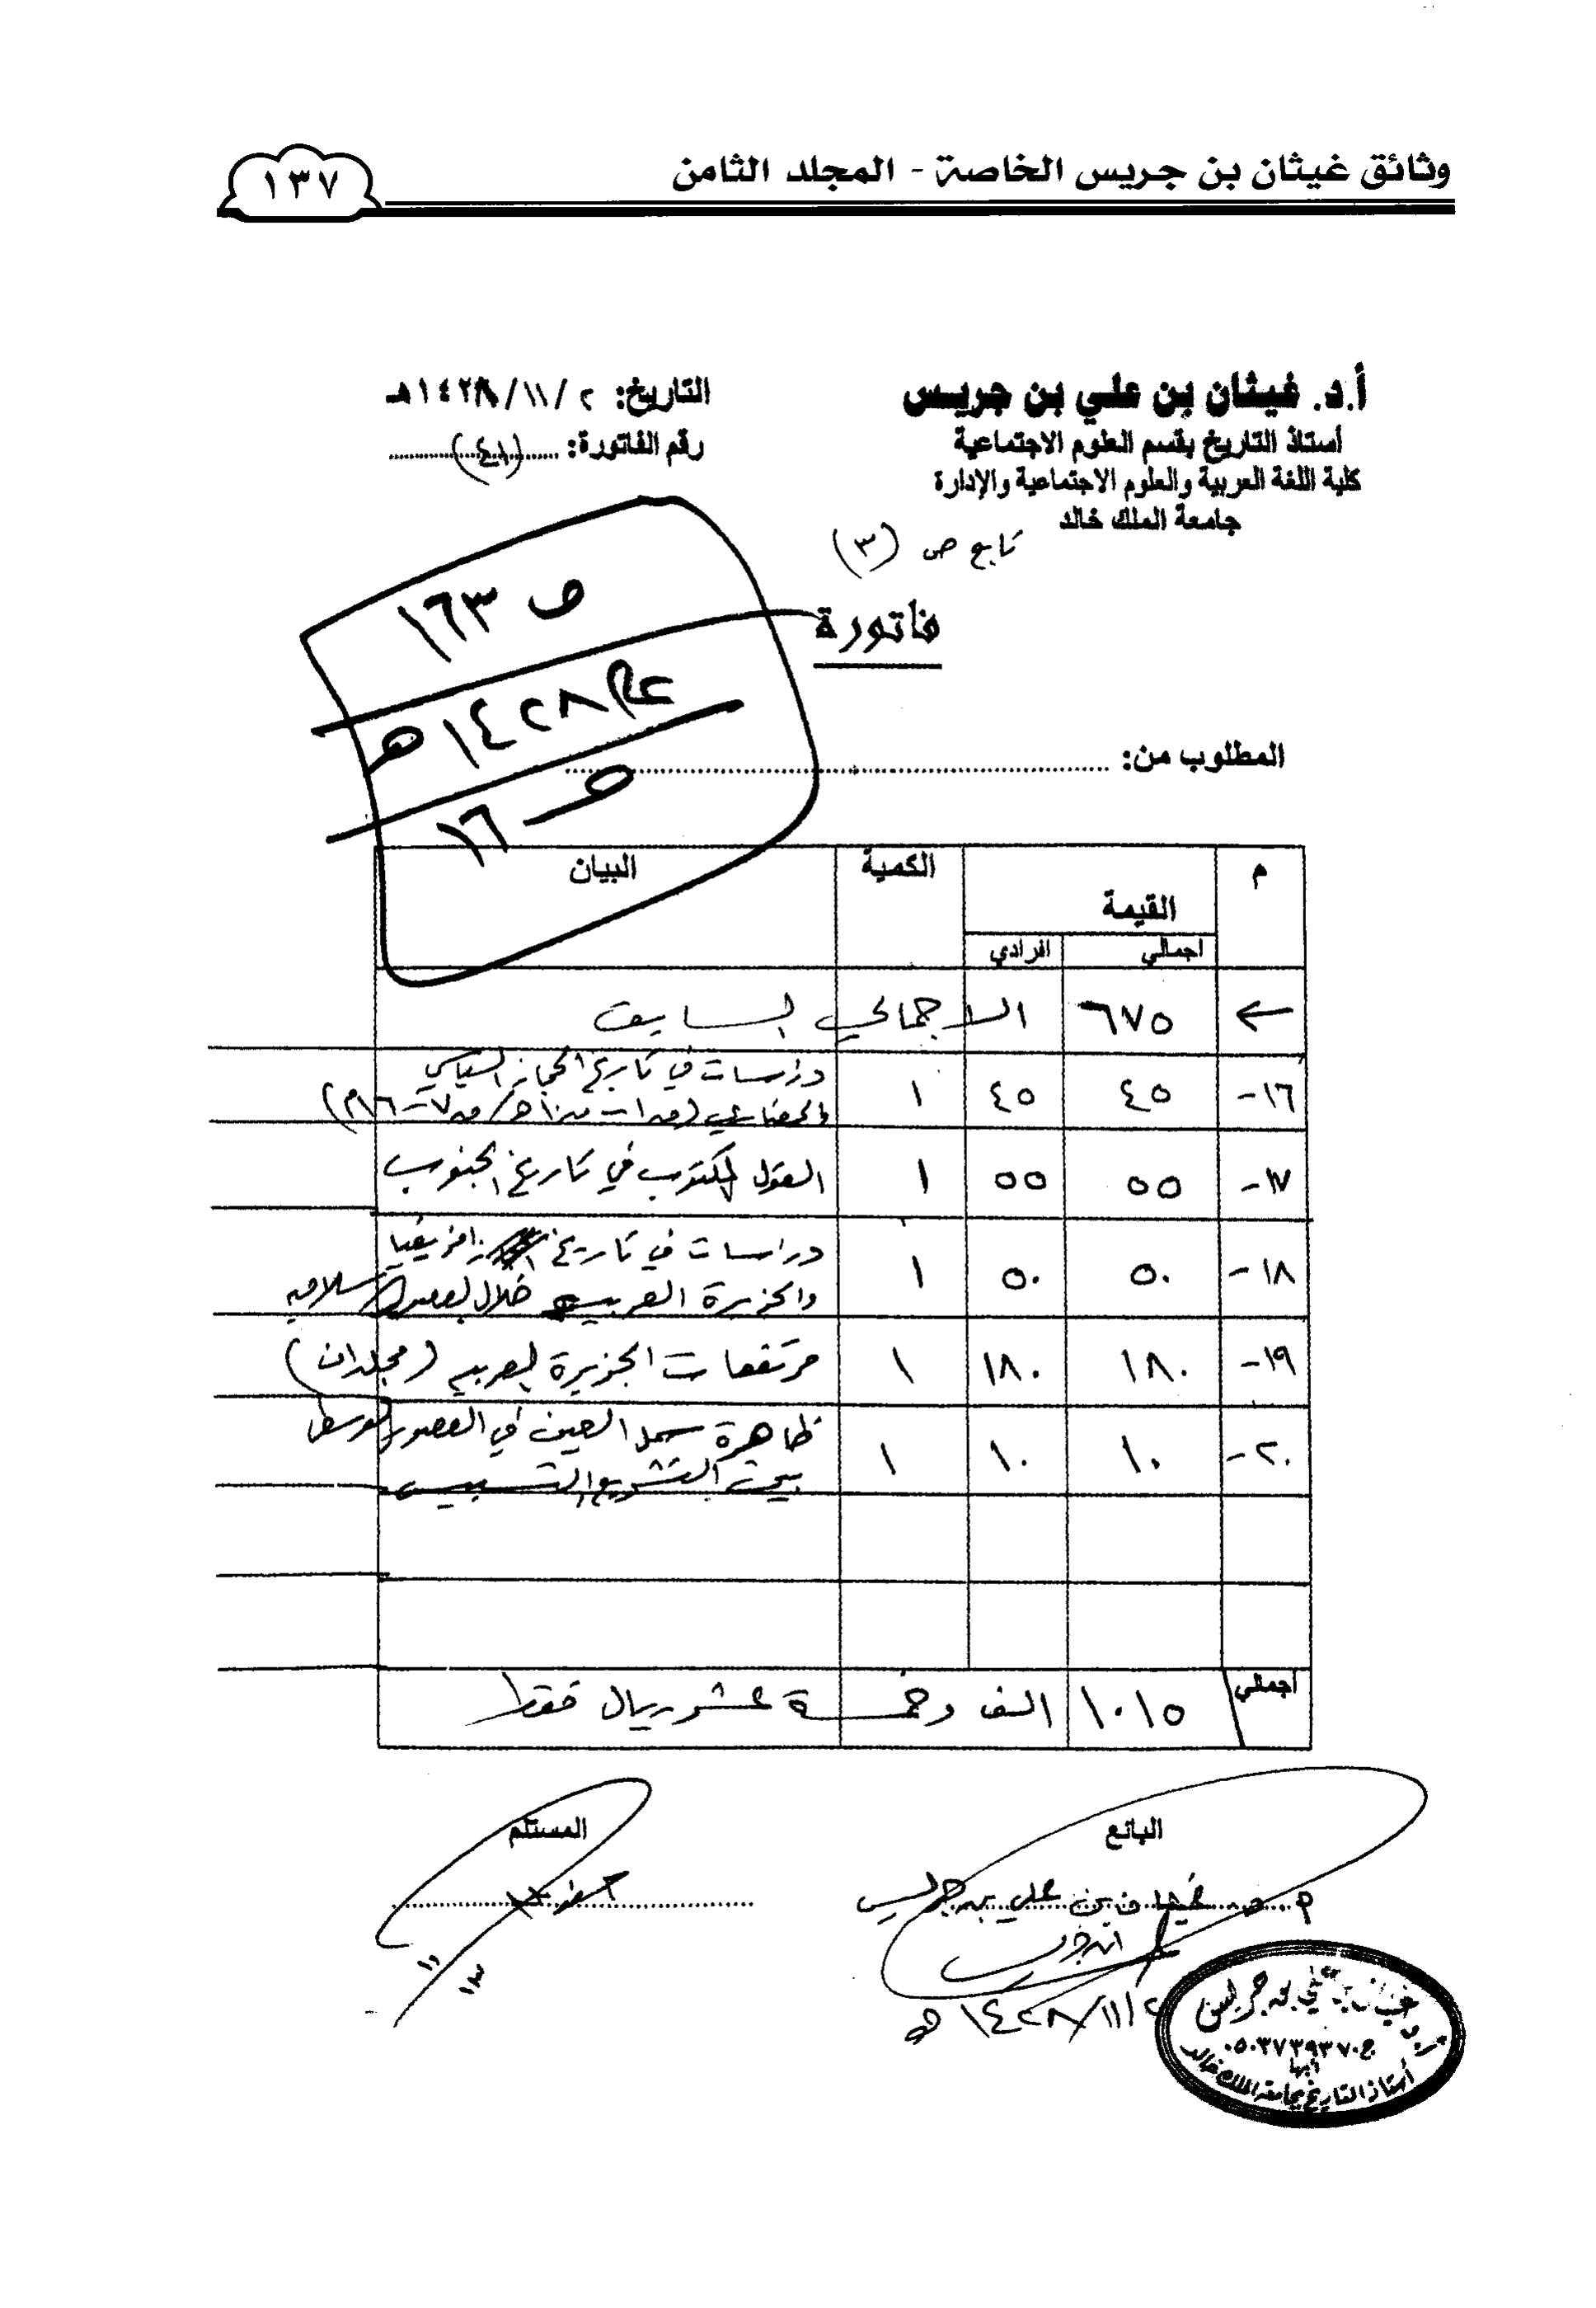 وثائق غيثان بن جريس الخاصة - المجلد الثامن
١٣٧
أ.د. غيثان بن علي بن جريس
أستاذ التاريخ بقسم العلوم الاجتماعية
كلية اللغة العربية والعلوم الاجتماعية والإدارة
جامعة الملك خالد
التاريخ: ٢ / ١١ / ١٤٢٨هـ
رقم الفاتورة: (٤١)
تابع ص (٣)
فاتورة
ص ١٦٣
١٤٢٨هـ
ص ١٦
المطلوب من:
م القيمة الكمية البيان
اجمالي افرادي
← ٦٧٥ الاجمالي السابق
١٦- ٤٥ ٤٥ ١ دراسات في تاريخ الحجاز السياسي
والحضاري (ق١ - ق١٠هـ / ق٧ - ١٦م)
١٧- ٥٥ ٥٥ ١ القول المكتوب في تاريخ الجنوب
١٨- ٥٠ ٥٠ ١ دراسات في تاريخ افريقيا
والجزيرة العربية خلال العصور الاسلامية
١٩- ١٨٠ ١٨٠ ١ مرتفعات الجزيرة العربية (مجلدان)
٢٠- ١٠ ١٠ ١ ظاهرة سمل العين في العصور الوسطى
بين التشريع والتسييس
اجمالي ١٠١٥ الف وخمسة عشر ريال فقط
البائع
المستلم
غيثان بن علي بن جريس
٢ / ١١ / ١٤٢٨ هـ
أ.د غيثان بن علي بن جريس
ج٠٥٠٣٧٣٩٣٧٠
أبها
أستاذ التاريخ بجامعة الملك خالد